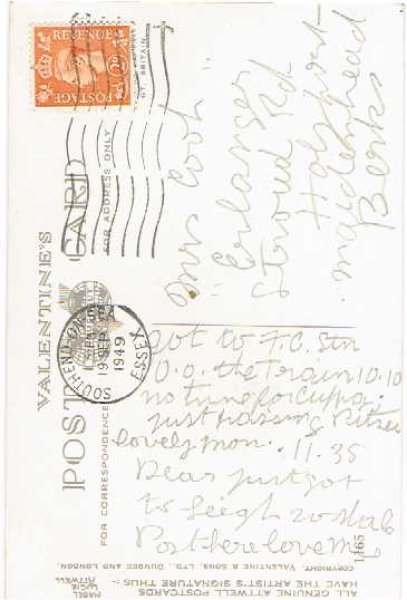 VALENTINE'S
POST CARD
FOR CORRESPONDENCE
FOR ADDRESS ONLY
GT. BRITAIN
POSTAGE
REVENUE
SOUTHEND-ON-SEA
19 SEP
1949
ESSEX
Mrs Cook
"Erlanger"
Stroud Rd
Holyport
Maidenhead
Berks
Got to F.C. Stn
O.O. the Train 10.10
no time for cuppa
just passing Pitsea
lovely morn. 11.35
Dear just got
to Leigh so shall
Post here love M
1165
COPYRIGHT, VALENTINE & SONS, LTD., DUNDEE AND LONDON
ALL GENUINE ATTWELL POSTCARDS
HAVE THE ARTIST'S SIGNATURE THUS:-
MABEL
LUCIE
ATTWELL